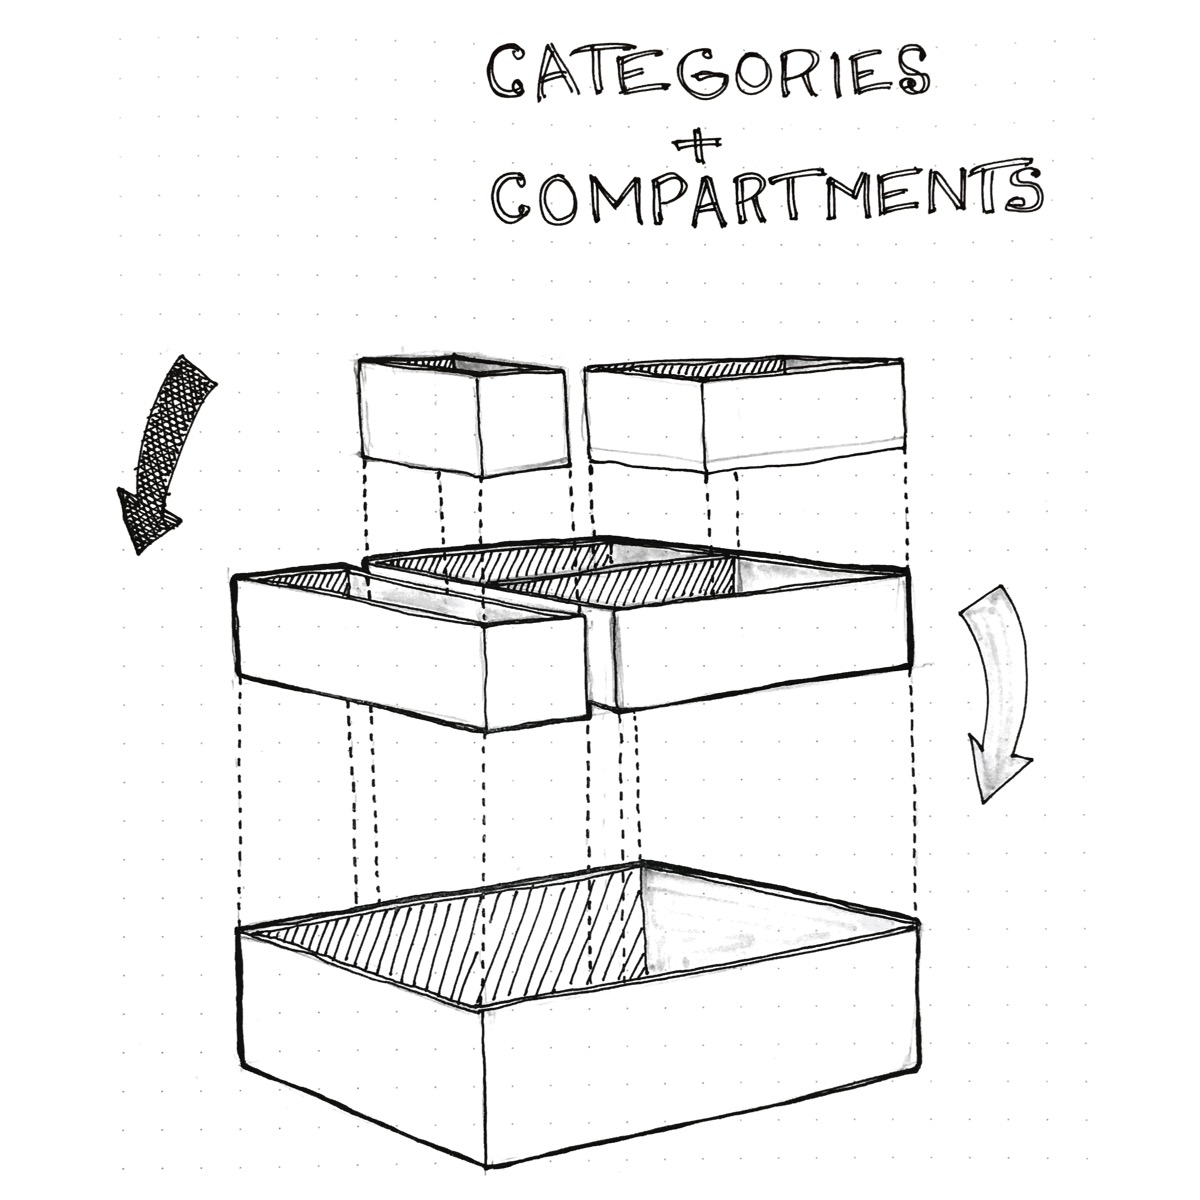 CATEGORIES
+
COMPARTMENTS